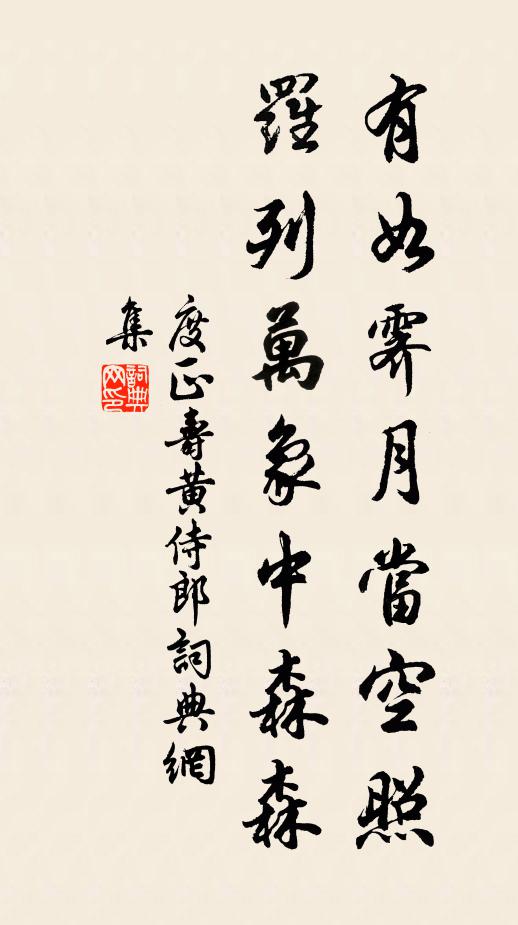 有如霽月當空照
羅列萬象中森森
度正壽黃侍郎詞典網
集
詞典網印